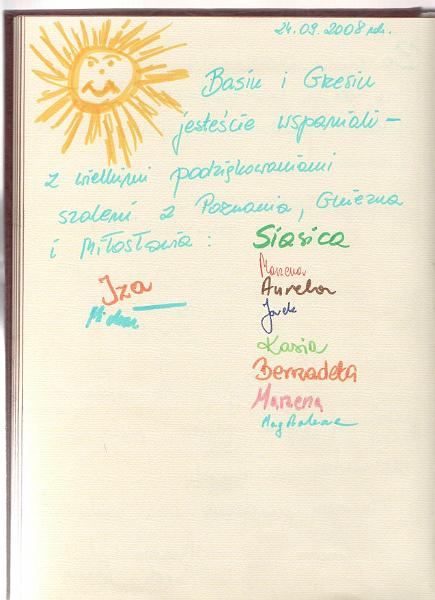 24.09.2008 rok.
Basiu i Grzesiu
jesteście wspaniali –
z wielkimi podziękowaniami
szaleni z Poznania, Gniezna
i Miłosławia:
Siasica
Marzena
Aurelia
Jarek
Kasia
Bernadeta
Marzena
Magdalena
Iza